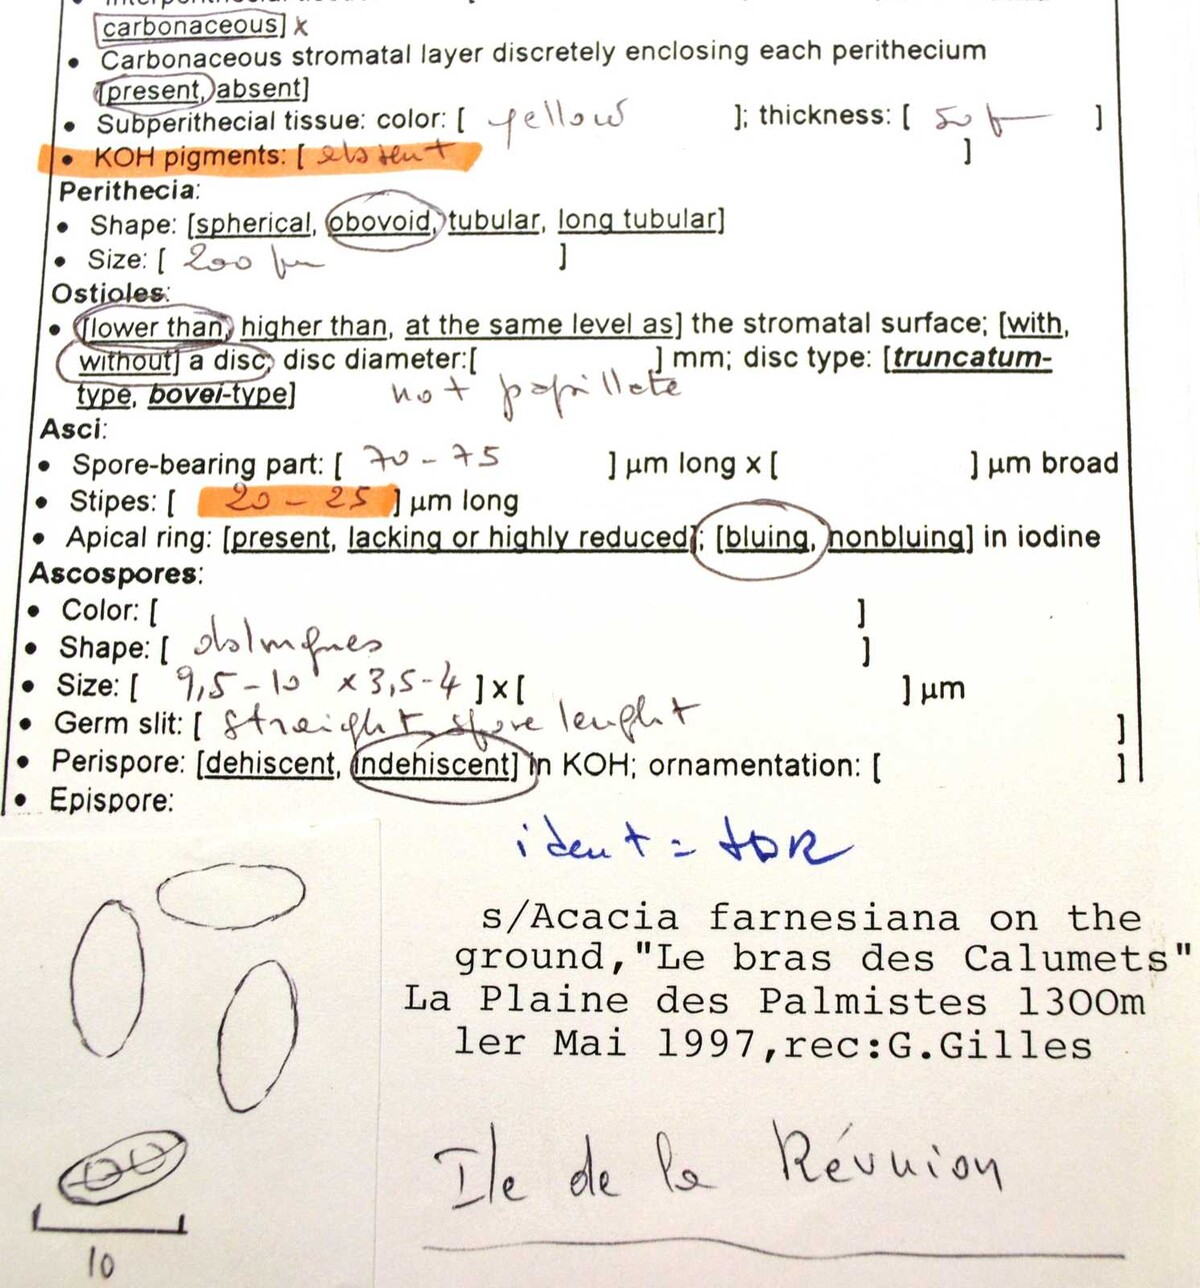 carbonaceous] x
• Carbonaceous stromatal layer discretely enclosing each perithecium
[present, absent]
• Subperithecial tissue: color: [ yellow ]; thickness: [ 50 µm ]
• KOH pigments: [ absent ]
Perithecia:
• Shape: [spherical, obovoid, tubular, long tubular]
• Size: [ 200 µm ]
Ostioles:
• [lower than, higher than, at the same level as] the stromatal surface; [with,
without] a disc, disc diameter:[ ] mm; disc type: [truncatum-
type, bovei-type] not papillate
Asci:
• Spore-bearing part: [ 70 - 75 ] µm long x [ ] µm broad
• Stipes: [ 20 - 25 ] µm long
• Apical ring: [present, lacking or highly reduced]; [bluing, nonbluing] in iodine
Ascospores:
• Color: [ ]
• Shape: [ oblongues ]
• Size: [ 9,5 - 10 x 3,5-4 ] x [ ] µm
• Germ slit: [ straight, spore lenght ]
• Perispore: [dehiscent, indehiscent] in KOH; ornamentation: [ ]
• Epispore:
ident =
s/Acacia farnesiana on the
ground,"Le bras des Calumets"
La Plaine des Palmistes 1300m
1er Mai 1997,rec:G.Gilles
Ile de la Réunion
10